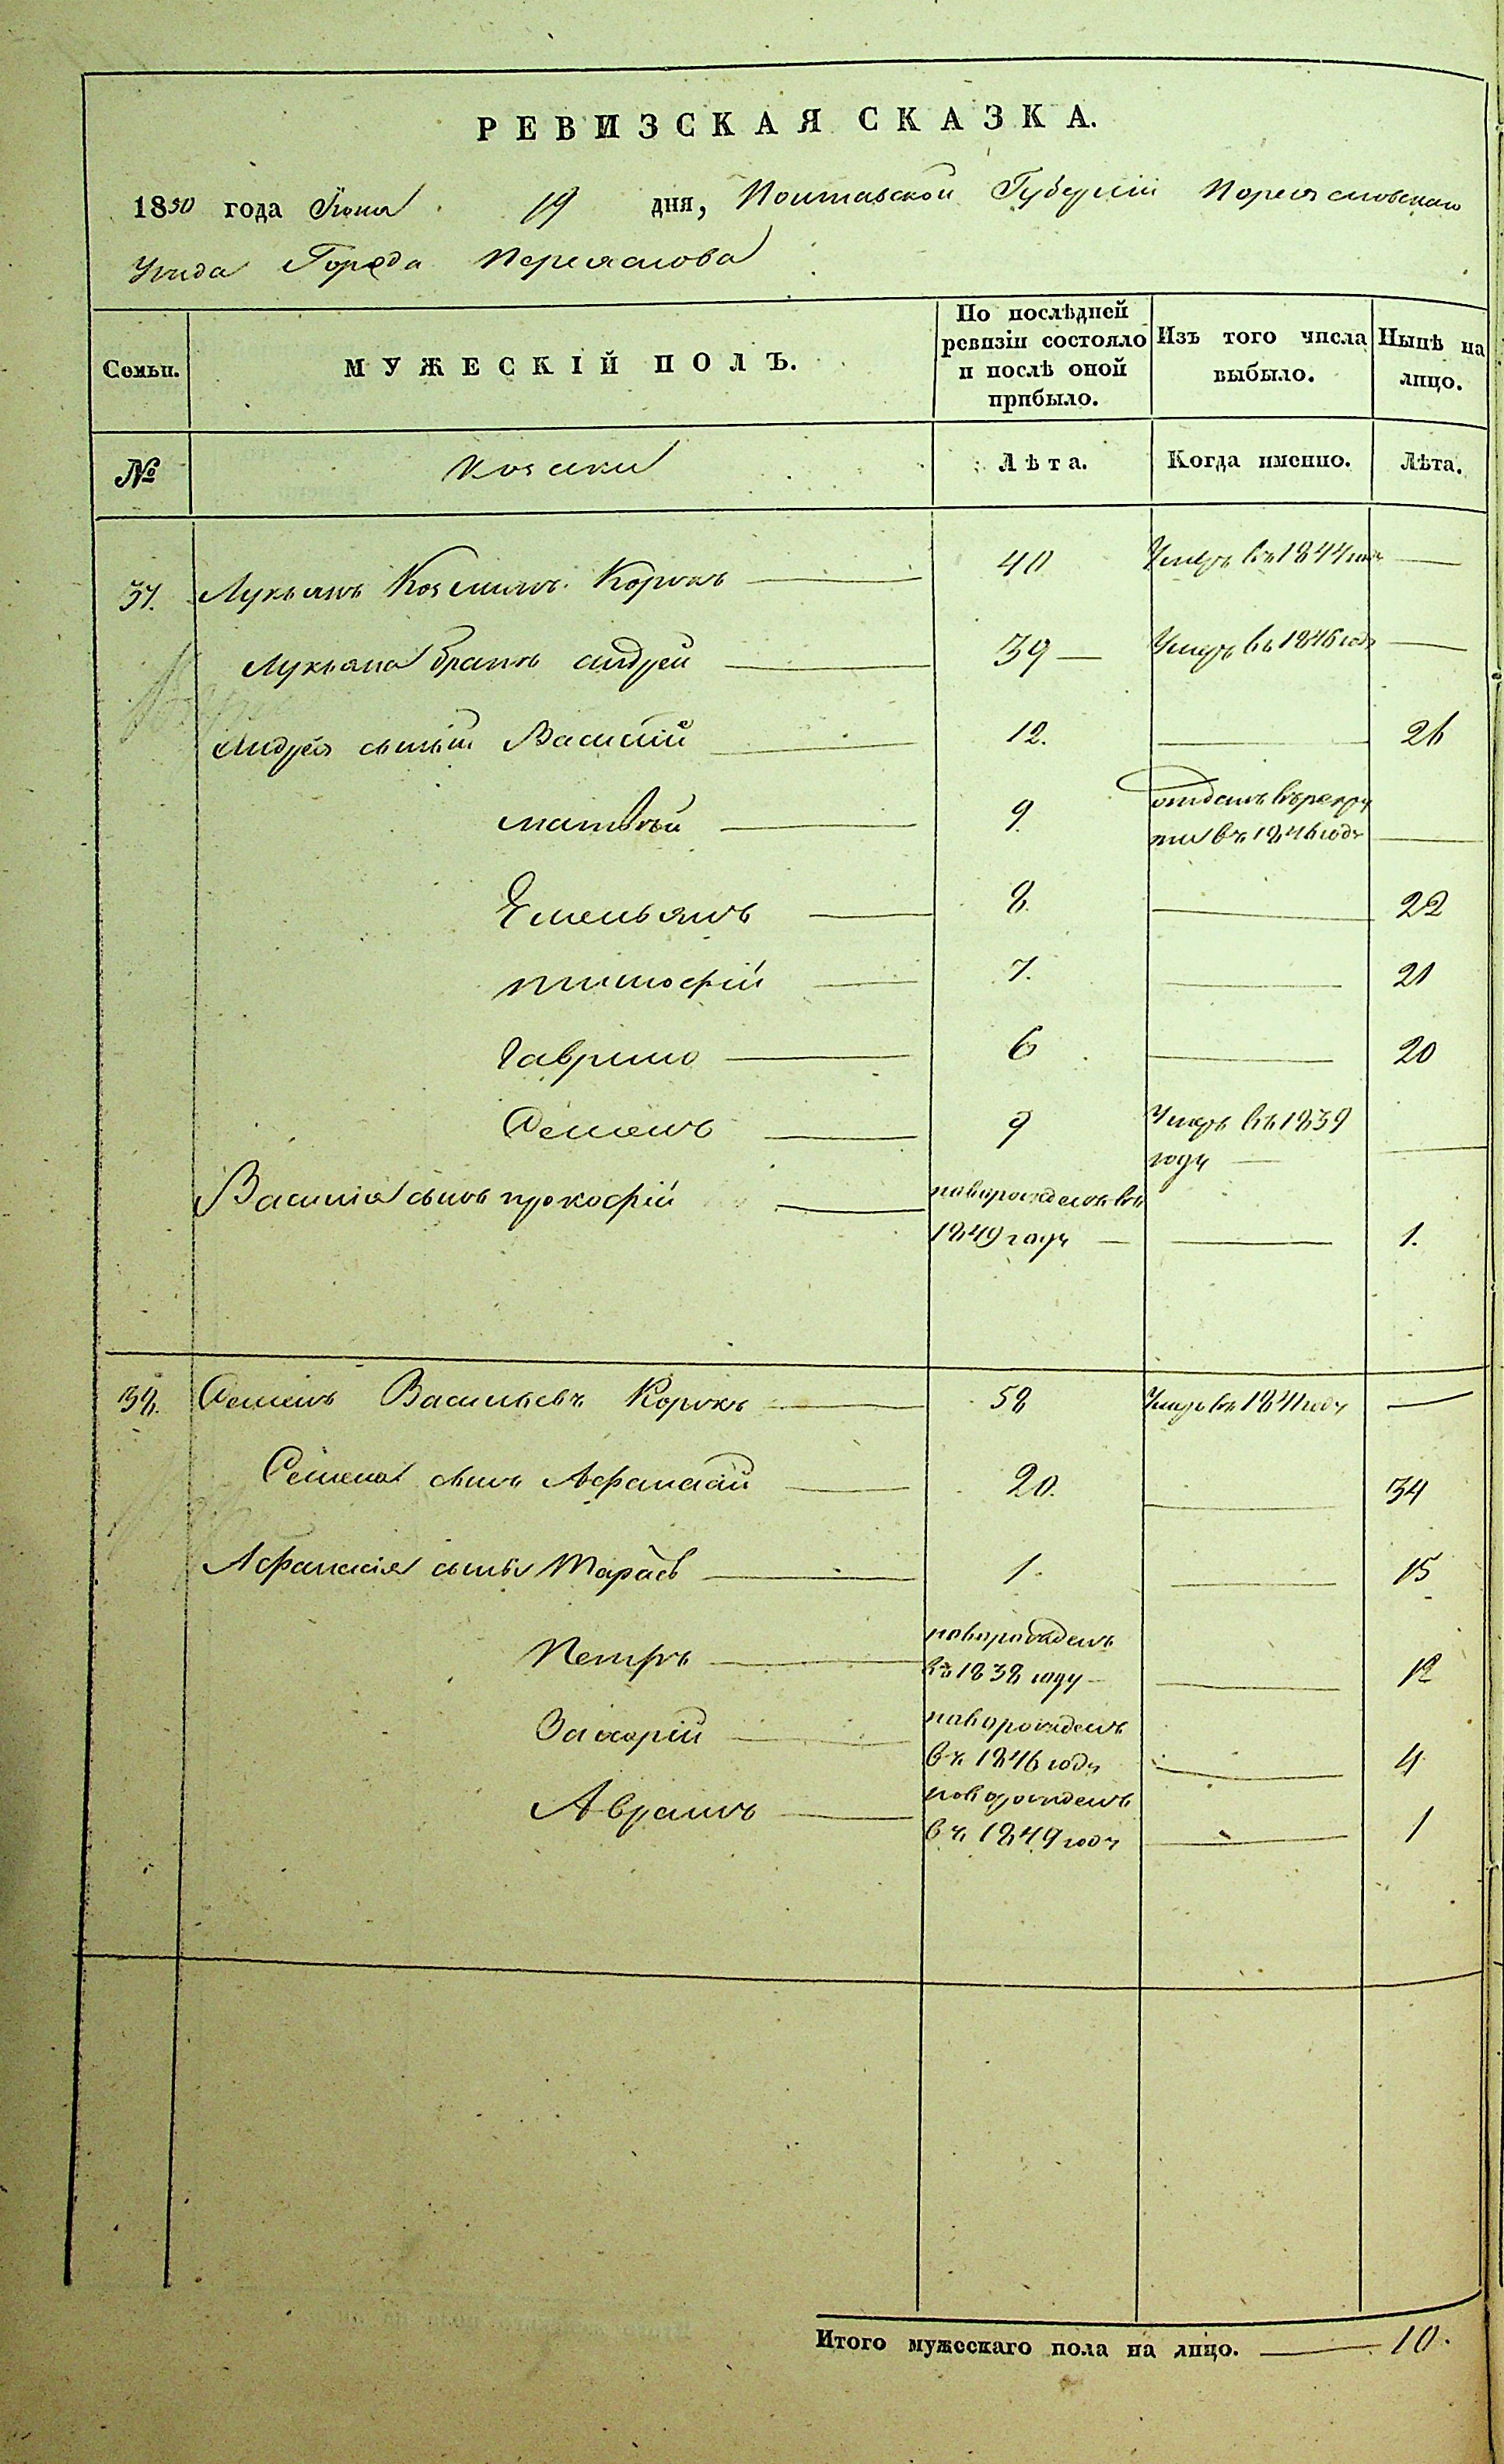 РЕВИЗСКАЯ СКАЗКА.
1850 года Июня 19 дня, Полтавской Губерніи Переяславскаго
Уезда Города Переяслова
Семьи. МУЖЕСКІЙ ПОЛЪ. По послѣдней ревизіи состояло и послѣ оной прибыло. Изъ того числа выбыло. Нынѣ на лицо.
№ Козаки Лѣта. Когда именно. Лѣта.
37. Лукьянъ Козминъ Корокъ 40 Умеръ въ 1844 году
Лукьяна братъ андрей 39 Умеръ въ 1846 году
Андрея сыновья Василій 12. 26
матвѣй 9. отданъ в рекру
ты въ 1846 году
Емельянъ 8. 22
тимофій 7. 21
гаврило 6 20
Семенъ 9 Умеръ въ 1839
году
Василія сынъ прокофій новорожденъ въ
1849 году 1.
38. Семенъ Васильевъ Корокъ 58 Умеръ въ 1841 году
Семена сынъ Афанасій 20. 34
Афанасія сыны Тарасъ 1. 15
Петръ новорожденъ
въ 1838 году 12
Захарій новорожденъ
въ 1846 году 4
Аврамъ новорожденъ
въ 1849 году 1
Итого мужескаго пола на лицо. 10.